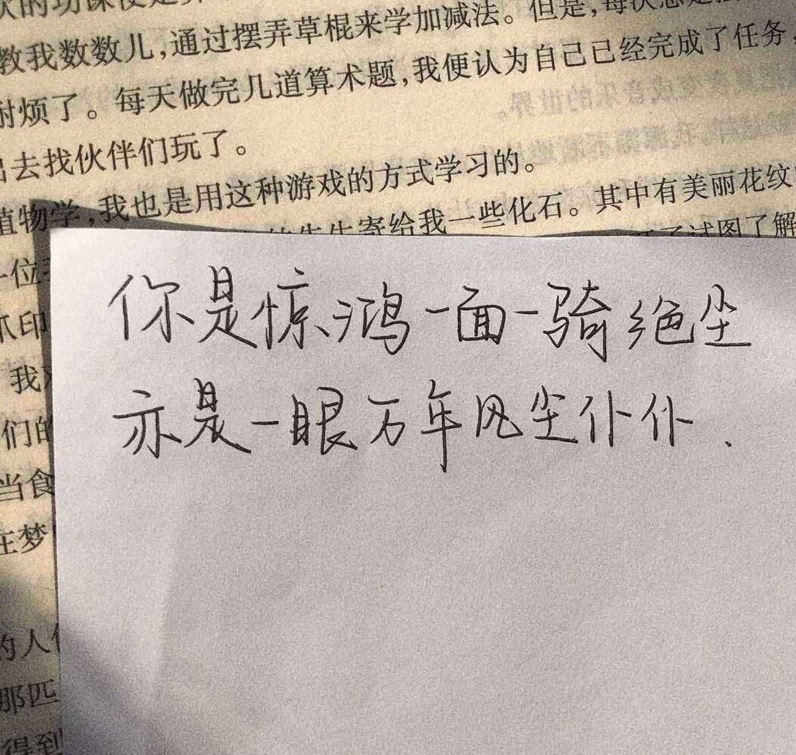 次的功课便是算
教我数数儿,通过摆弄草棍来学加减法。但是,每次总是
耐烦了。每天做完几道算术题,我便认为自己已经完成了任务,
出去找伙伴们玩了。
植物学,我也是用这种游戏的方式学习的。
先生寄给我一些化石。其中有美丽花纹
一位
试图了解
爪印
我
们的
当食
在梦
的人们
那匹
得到
你是惊鸿一面一骑绝尘
亦是一眼万年风尘仆仆.